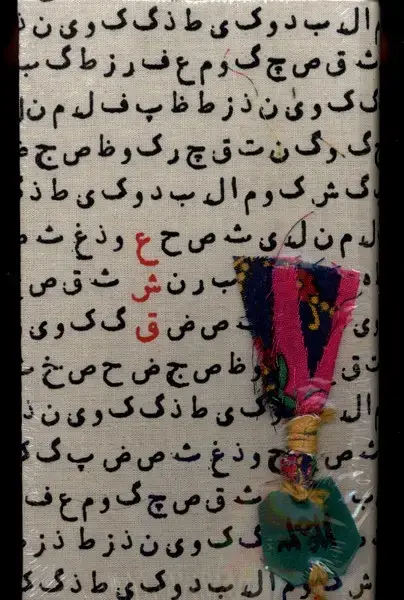 ال ب د و ک ی ط ذ گ ک و ی ن ذ
ث ق ص چ گ و م ع ف ر ز ط گ ب
گ ک و ی ن ذ ز ط ظ پ ف ل م ن ل
گ و گ ن ت ق چ ر ک و ظ ص ج
گ ش ک و م ال ب د و ک ی ط ذ
ل م ن ل ی ث ص ح ع و ذ غ ث
ب ر ن ش ث ق ص
ص ض ق گ ک و ی
ظ ص ج ض ح ص خ
ال ک ی ط ذ گ ک و ی ن ذ
ص و ذ غ ث ص ض پ گ گ
ب ث ق ص چ گ و م ع ف
گ ک و ی ن ذ ز ط ذ ز
ش گ و م ال ب د و ک ی ط ذ گ ک